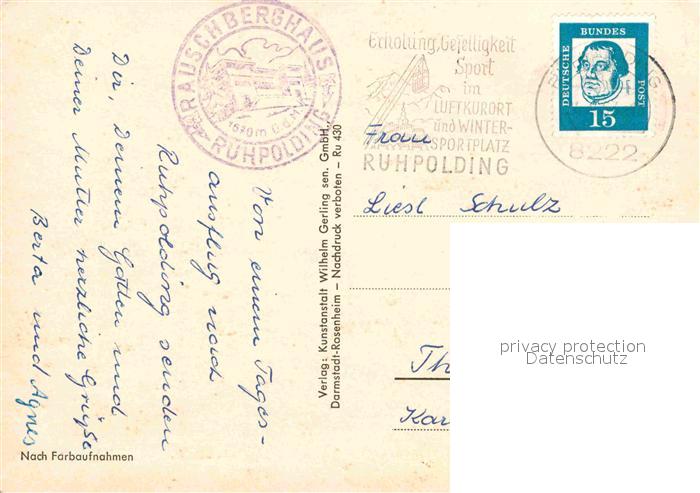 RAUSCHBERGHAUS
1670m ü.d.M.
RUHPOLDING
Erholung, Geselligkeit
Sport
im
LUFTKURORT
und WINTER-
SPORTPLATZ
RUHPOLDING
DEUTSCHE BUNDES POST
15
8222
Von einem Tages-
ausflug nach
Ruhpolding senden
Dir, Deinem Gatten und
Deiner Mutter herzliche Grüße
Berta und Agnes
Verlag: Kunstanstalt Wilhelm Gerling sen. GmbH.,
Darmstadt-Rosenheim – Nachdruck verboten – Ru 430
Frau
Liesl Schulz
Th
Kar
privacy protection
Datenschutz
Nach Farbaufnahmen